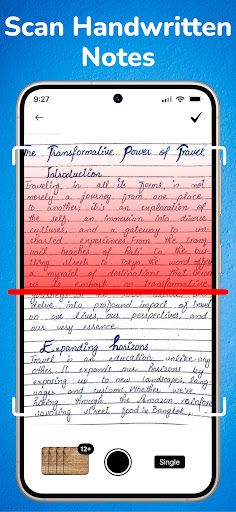 Scan Handwritten
Notes
9:27
The Transformative Power of Travel
Introduction
Traveling, in all its forms, is not
merely a journey from one place
to another; it is an exploration of
the self, an immersion into diverse
cultures, and a gateway to un-
charted experiences. From the tranq
uil beaches of Bali to the bus
tling streets of Tokyo, the world offers
a myriad of destinations that
us to embark on transformative
delve into profound impact of travel
on our lives, our perspectives, and
our very essence.
Expanding Horizons
Travel is an education unlike any
other. It expands our horizons by
exposing us to new landscapes, lang
uages and customs. Whether we're
through the Amazon rainforest
savoring street food in Bangkok,
12+
Single